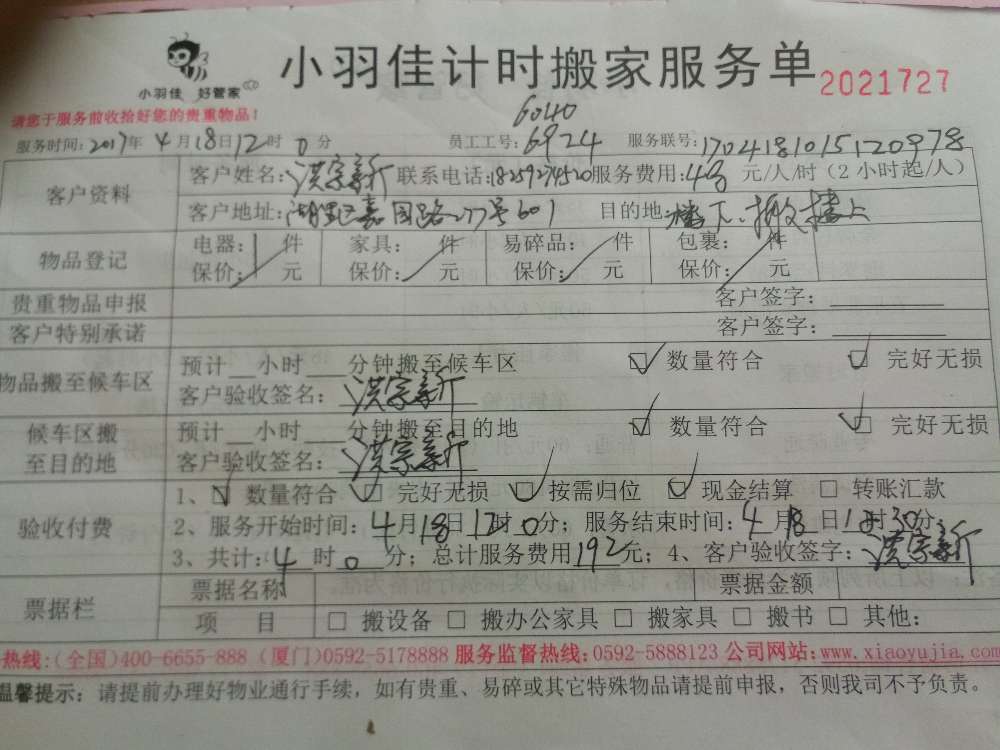 小羽佳 好管家
小羽佳计时搬家服务单
2021727
请您于服务前收拾好您的贵重物品!
6040
服务时间:2017年 4月18日12时 0分 员工工号:6924 服务联号:1704181015120978
客户资料
客户姓名:洪宗新 联系电话:18259274520 服务费用: 元/人/时(2小时起/人)
客户地址:湖里区嘉园路277号601 目的地:楼下:搬楼上
物品登记
电器: 件 家具: 件 易碎品: 件 包裹: 件
保价: 元 保价: 元 保价: 元 保价: 元
贵重物品申报 客户签字:
客户特别承诺 客户签字:
物品搬至候车区
预计 小时 分钟搬至候车区 ☑ 数量符合 ☑ 完好无损
客户验收签名:洪宗新
候车区搬至目的地
预计 小时 分钟搬至目的地 ☑ 数量符合 ☑ 完好无损
客户验收签名:洪宗新
验收付费
1、☑ 数量符合 ☑ 完好无损 ☑ 按需归位 ☑ 现金结算 □ 转账汇款
2、服务开始时间:4月18日12时0分;服务结束时间:4月18日 时30分
3、共计:4时0分;总计服务费用192元;4、客户验收签字:洪宗新
票据栏
票据名称 票据金额
项 目 □ 搬设备 □ 搬办公家具 □ 搬家具 □ 搬书 □ 其他:
热线:(全国)400-6655-888 (厦门)0592-5178888 服务监督热线:0592-5888123 公司网站:www.xiaoyujia.com
温馨提示:请提前办理好物业通行手续,如有贵重、易碎或其它特殊物品请提前申报,否则我司不予负责。